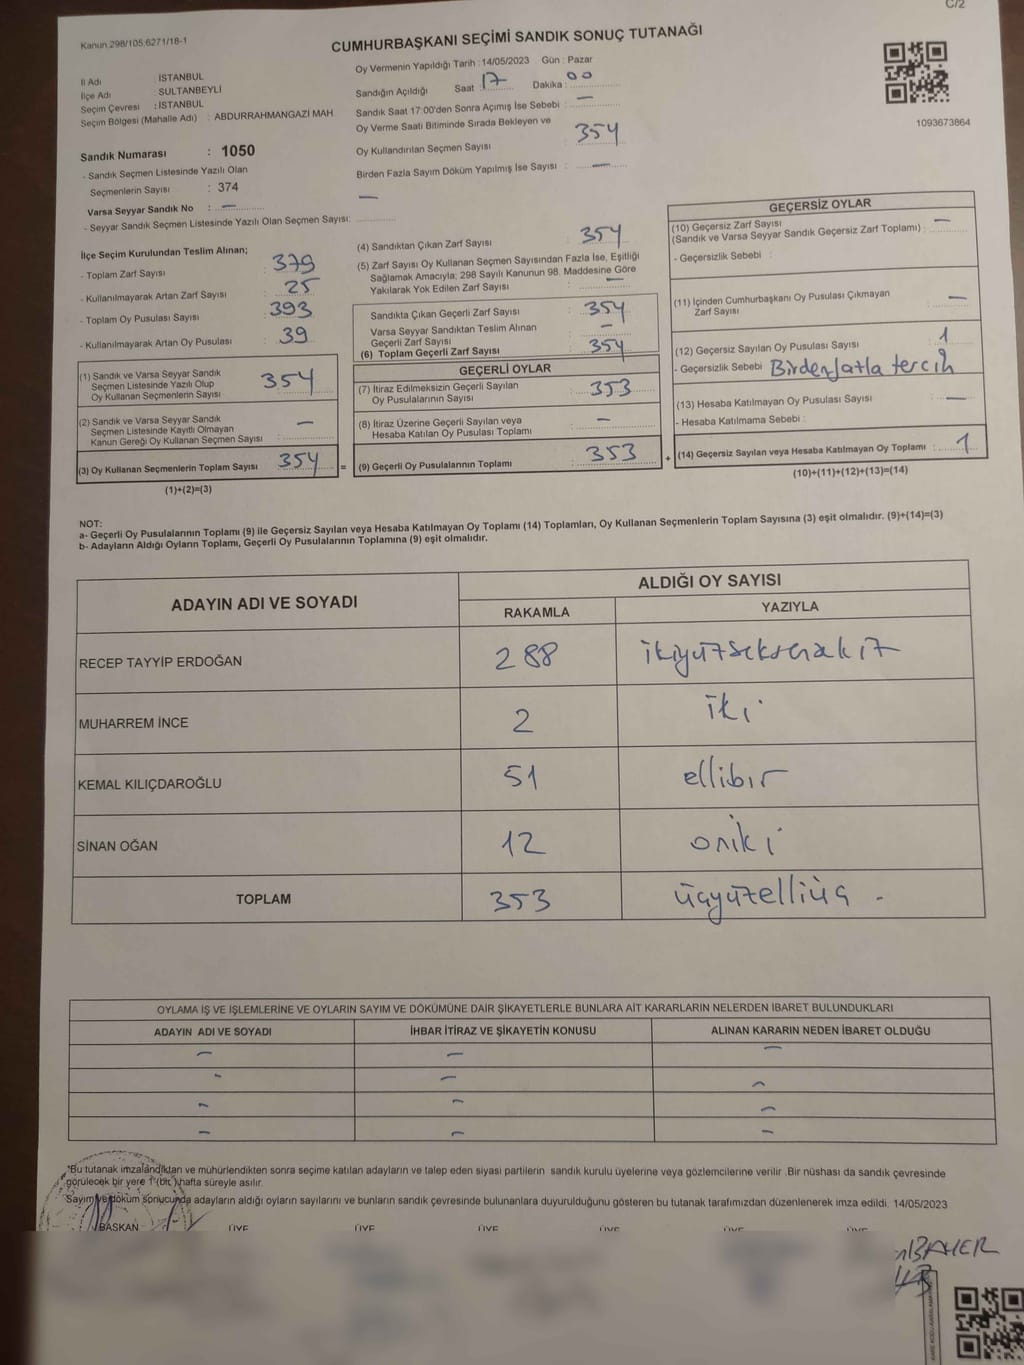 C/2
Kanun:298/105,6271/18-1
CUMHURBAŞKANI SEÇİMİ SANDIK SONUÇ TUTANAĞI
İl Adı : İSTANBUL
İlçe Adı : SULTANBEYLİ
Seçim Çevresi : İSTANBUL
Seçim Bölgesi (Mahalle Adı) : ABDURRAHMANGAZİ MAH
Sandık Numarası : 1050
- Sandık Seçmen Listesinde Yazılı Olan
Seçmenlerin Sayısı : 374
Varsa Seyyar Sandık No : —
- Seyyar Sandık Seçmen Listesinde Yazılı Olan Seçmen Sayısı: —
Oy Vermenin Yapıldığı Tarih : 14/05/2023 Gün : Pazar
Sandığın Açıldığı Saat : 17 Dakika : 00
Sandık Saat 17:00'den Sonra Açımış İse Sebebi : —
Oy Verme Saati Bitiminde Sırada Bekleyen ve
Oy Kullandırılan Seçmen Sayısı 354
Birden Fazla Sayım Döküm Yapılmış İse Sayısı : —
1093673864
İlçe Seçim Kurulundan Teslim Alınan;
- Toplam Zarf Sayısı 379
- Kullanılmayarak Artan Zarf Sayısı : 25
- Toplam Oy Pusulası Sayısı : 393
- Kullanılmayarak Artan Oy Pusulası : 39
(1) Sandık ve Varsa Seyyar Sandık
Seçmen Listesinde Yazılı Olup
Oy Kullanan Seçmenlerin Sayısı 354
(2) Sandık ve Varsa Seyyar Sandık
Seçmen Listesinde Kayıtlı Olmayan
Kanun Gereği Oy Kullanan Seçmen Sayısı : —
(3) Oy Kullanan Seçmenlerin Toplam Sayısı : 354 =
(1)+(2)=(3)
(4) Sandıktan Çıkan Zarf Sayısı : 354
(5) Zarf Sayısı Oy Kullanan Seçmen Sayısından Fazla İse, Eşitliği
Sağlamak Amacıyla; 298 Sayılı Kanunun 98. Maddesine Göre
Yakılarak Yok Edilen Zarf Sayısı : —
Sandıkta Çıkan Geçerli Zarf Sayısı : 354
Varsa Seyyar Sandıktan Teslim Alınan
Geçerli Zarf Sayısı : —
(6) Toplam Geçerli Zarf Sayısı : 354
GEÇERLİ OYLAR
(7) İtiraz Edilmeksizin Geçerli Sayılan
Oy Pusulalarının Sayısı : 353
(8) İtiraz Üzerine Geçerli Sayılan veya
Hesaba Katılan Oy Pusulası Toplamı : —
(9) Geçerli Oy Pusulalarının Toplamı : 353 +
GEÇERSİZ OYLAR
(10) Geçersiz Zarf Sayısı
(Sandık ve Varsa Seyyar Sandık Geçersiz Zarf Toplamı) : —
- Geçersizlik Sebebi :
(11) İçinden Cumhurbaşkanı Oy Pusulası Çıkmayan
Zarf Sayısı : —
(12) Geçersiz Sayılan Oy Pusulası Sayısı : 1
- Geçersizlik Sebebi : Birdenfatla tercih
(13) Hesaba Katılmayan Oy Pusulası Sayısı : —
- Hesaba Katılmama Sebebi :
(14) Geçersiz Sayılan veya Hesaba Katılmayan Oy Toplamı : 1
(10)+(11)+(12)+(13)=(14)
NOT:
a- Geçerli Oy Pusulalarının Toplamı (9) ile Geçersiz Sayılan veya Hesaba Katılmayan Oy Toplamı (14) Toplamları, Oy Kullanan Seçmenlerin Toplam Sayısına (3) eşit olmalıdır. (9)+(14)=(3)
b- Adayların Aldığı Oyların Toplamı, Geçerli Oy Pusulalarının Toplamına (9) eşit olmalıdır.
ADAYIN ADI VE SOYADI ALDIĞI OY SAYISI
RAKAMLA YAZIYLA
RECEP TAYYİP ERDOĞAN 288 ikiyüzseksensekiz
MUHARREM İNCE 2 iki
KEMAL KILIÇDAROĞLU 51 ellibir
SİNAN OĞAN 12 oniki
TOPLAM 353 üçyüzelliüç -
OYLAMA İŞ VE İŞLEMLERİNE VE OYLARIN SAYIM VE DÖKÜMÜNE DAİR ŞİKAYETLERLE BUNLARA AİT KARARLARIN NELERDEN İBARET BULUNDUKLARI
ADAYIN ADI VE SOYADI İHBAR İTİRAZ VE ŞİKAYETİN KONUSU ALINAN KARARIN NEDEN İBARET OLDUĞU
— — —
— — —
— — —
— — —
*Bu tutanak imzalandıktan ve mühürlendikten sonra seçime katılan adayların ve talep eden siyasi partilerin sandık kurulu üyelerine veya gözlemcilerine verilir. Bir nüshası da sandık çevresinde
görülecek bir yere 1 (bir) hafta süreyle asılır.
Sayım ve döküm sonucunda adayların aldığı oyların sayılarını ve bunların sandık çevresinde bulunanlara duyurulduğunu gösteren bu tutanak tarafımızdan düzenlenerek imza edildi. 14/05/2023
BAŞKAN ÜYE ÜYE ÜYE ÜYE ÜYE ÜYE